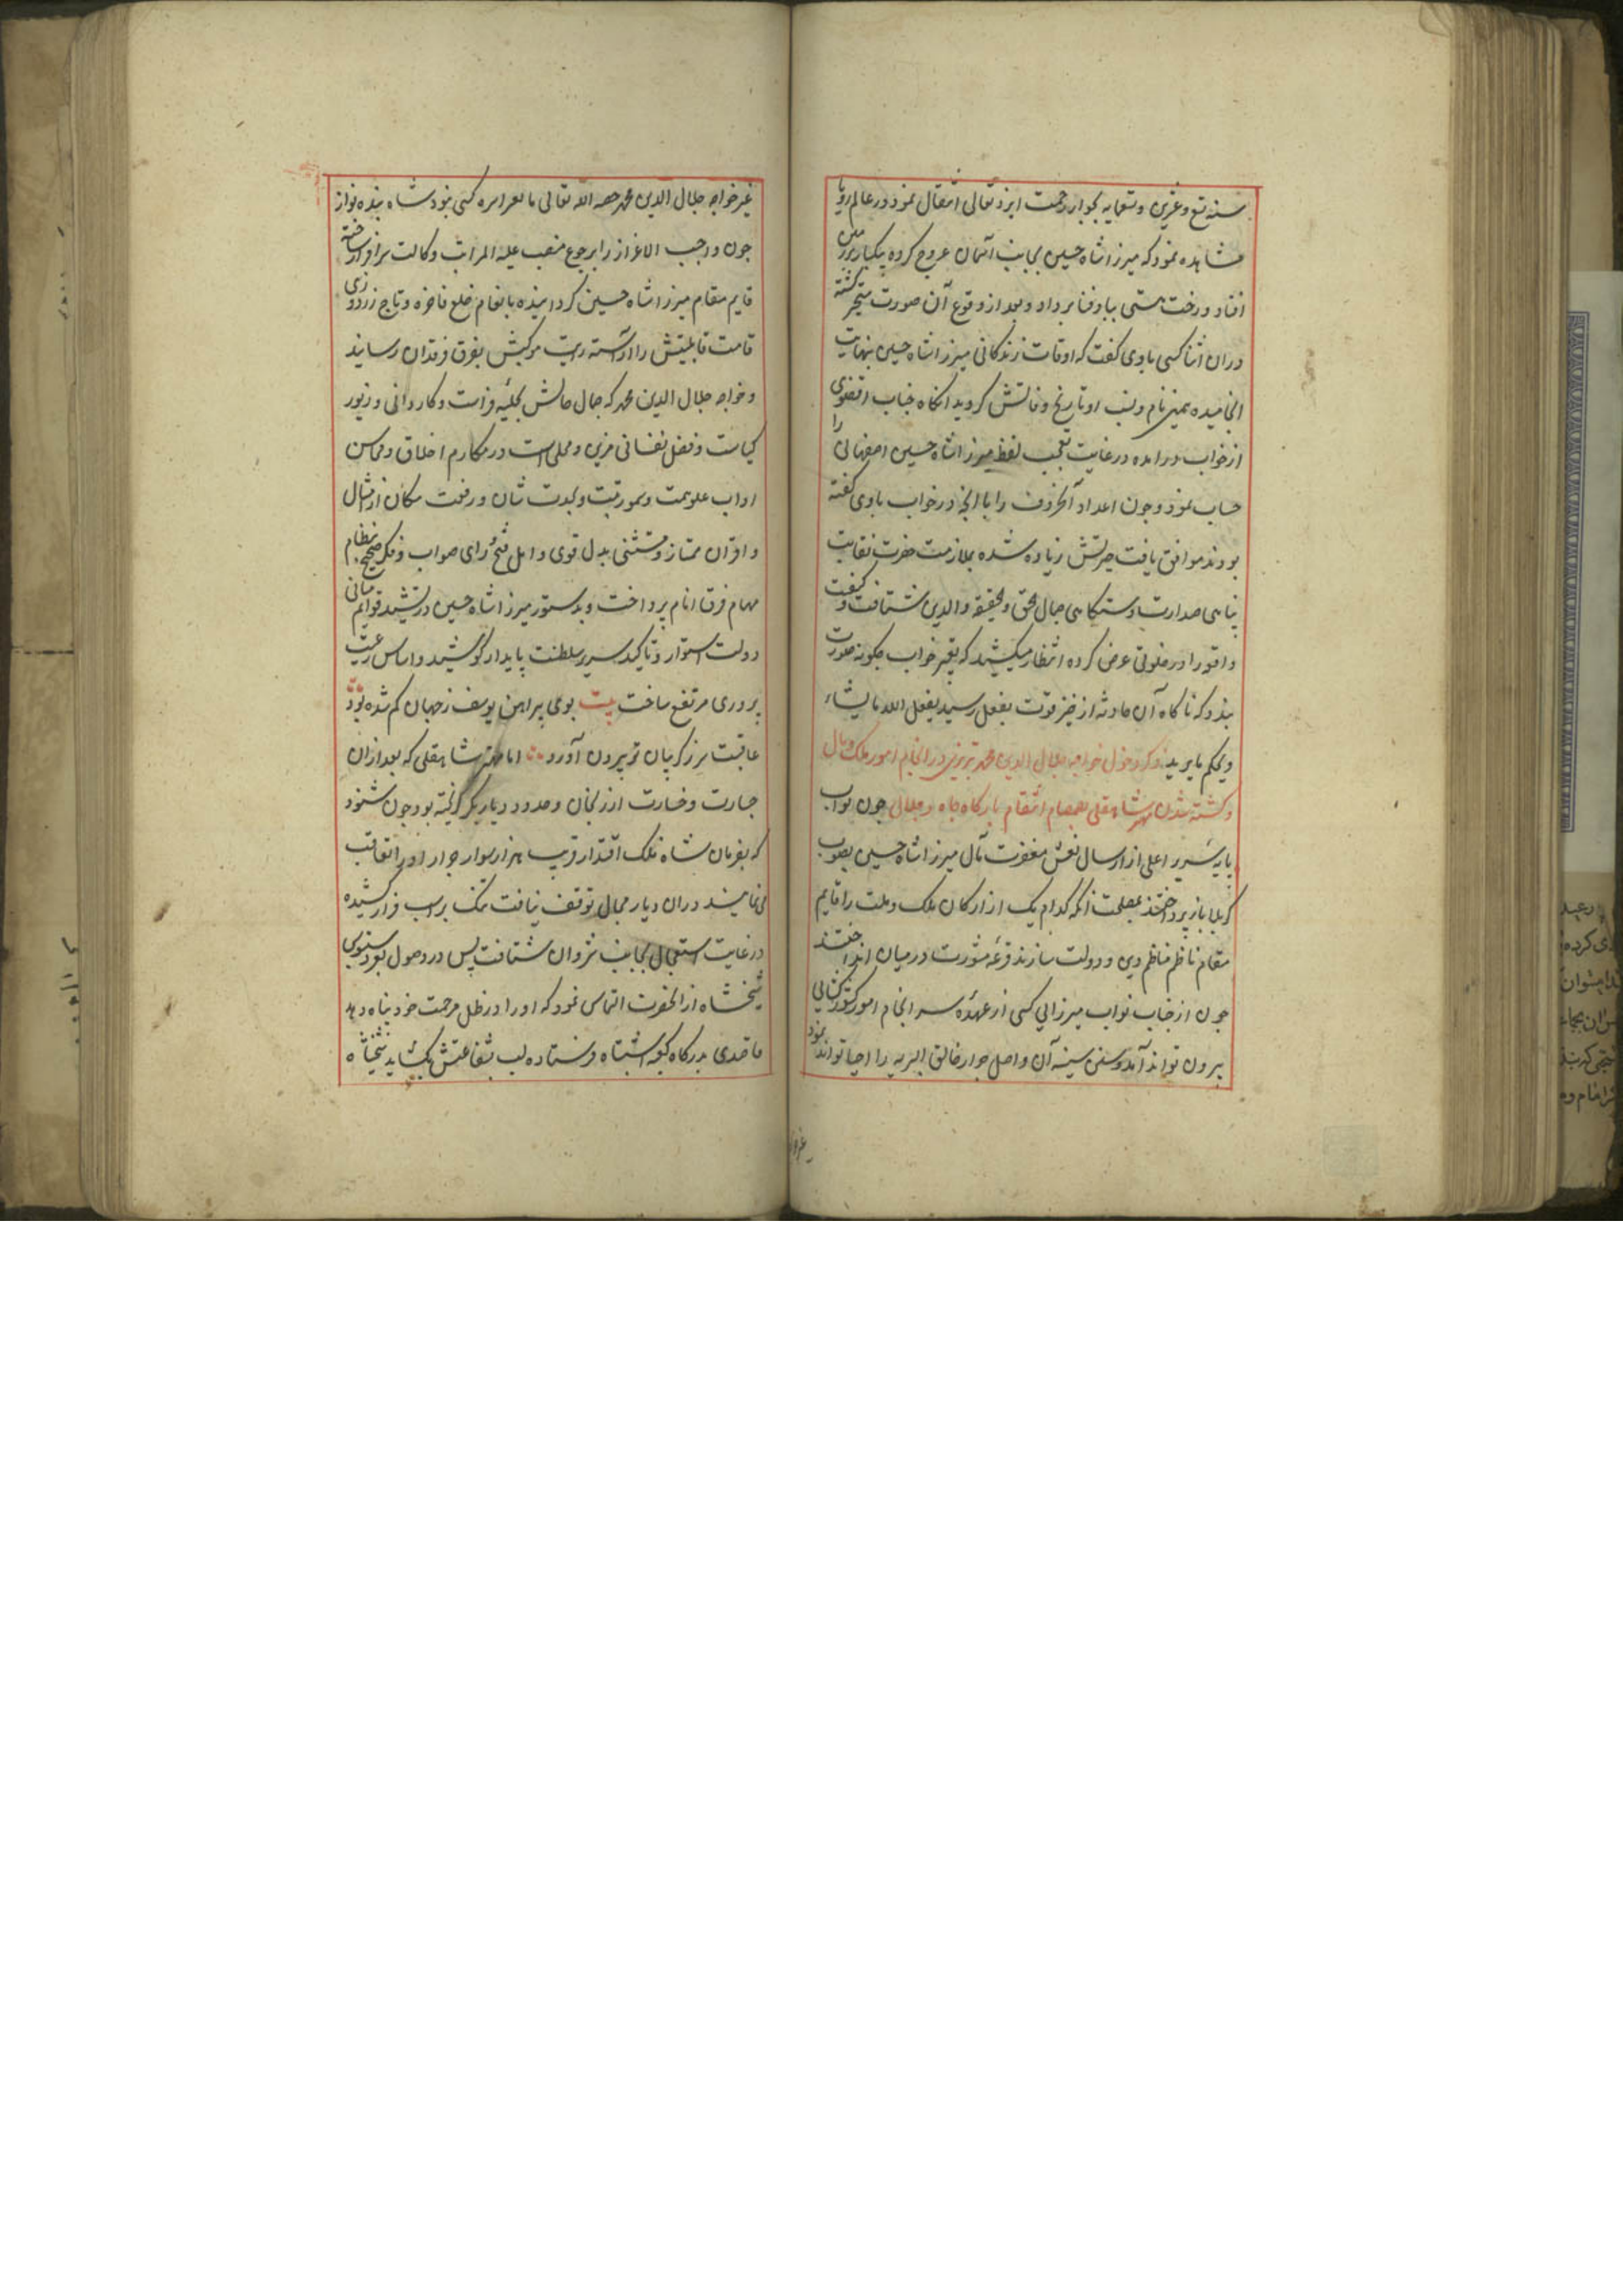 سنه تسع و عشرین و تسعمایه بجوار رحمت ایزد تعالی انتقال نمود در عالم رویا
مشاهده نمود که میرزا شاه حسین بجانب آسمان عروج کرده یکبار بر زمین
افتاد و رخت هستی بباد فنا بر داد و بعد از وقوع آن صورت متحیر گشته
در ان اثنا کسی با وی گفت که اوقات زندگانی میرزا شاه حسین بنهایت
انجامیده همین نام و لقب او تاریخ وفاتش گردید انکاه جناب
از خواب در امده در غایت تعجب لفظ میرزا شاه حسین اصفهانی را
حساب نمود و چون اعداد آنحروف را با انچه در خواب با وی گفته
بودند موافق یافت حیرتش زیاده شده بملازمت حضرت نقابت
پناهی صدارت دستکاهی جمال الحق و الحقیقه و الدین شتافت و کیفیت
واقعه را در خلوتی عرض کرده انتظار میکشید که تعبیر خواب چکونه صورت
بندد که ناکاه آن حادثه از حیز قوت بفعل رسید یفعل الله ما یشاء
و یحکم ما یرید ذکر دخول خواجه جلال الدین محمد تبریزی در انجام امور ملک و مال
و کشته شدن مهتر شاهقلی بصمصام انتقام بارکاه جاه و جلال چون نواب
پایه سریر اعلی از ارسال نعش مغفرت مآل میرزا شاه حسین بصوب
کربلا باز پرداختند بمصلحت انکه کدام یک از ارکان ملک و ملت را قایم
مقام ناظم مناظم دین و دولت سازند قرعه مشورت در میان انداختند
چون از جناب نواب میرزایی کسی از عهده سر انجام امور کشور کشایی
بیرون تواند آمد و سنن سنیه آن واصل جوار خالق البریه را احیا تواند نمود
غیر خواجه جلال الدین محمد الله تعالی کسی نبود شاه بنده نواز
چون واجب الاعزاز را برجوع منصب علیه المراتب وکالت سرافراز ساخته
قایم مقام میرزا شاه حسین کردانیده بانعام خلع فاخره و تاج زردوزی
قامت قابلیتش را اراسته رایت موکبش بفرق فرقدان رسانید
و خواجه جلال الدین محمد که جمال حالش بحلیه فراست و کاردانی و زیور
کیاست و فضل نفسانی مزین و محلی است در مکارم اخلاق و محاسن
اداب علو همت و سمو رتبت و شان و رفعت مکان از امثال
و اقران ممتاز و مستثنی بدل قوی و امل فسیح رای صواب و فکر صحیح بنظام
مهام فرق انام پرداخت و بدستور میرزا شاه حسین در تشیید قوایم مبانی
دولت استوار و تاکید سریر سلطنت پایدار کوشید و اساس رعیت
پروری مرتفع ساخت بیت بوی پیراهن یوسف ز جهان کم شده بود
عاقبت سر ز کریبان تو بیرون آورد اما مهتر شاهقلی که بعد از ان
جسارت و خسارت از زنجان و حدود دیار بکر کریخته بود چون شنود
که بفرمان شاه فلک اقتدار قریب هزار سوار جرار او را تعاقب
می نمایند در ان دیار مجال توقف نیافت تنک بر اسب فرار کشیده
در غایت استعجال بجانب شروان شتافت پس در وصول بحدود
شیخشاه از انحضرت التماس نمود که او را در ظل مرحمت خود پناه دهد
و قاصدی بدرکاه کیتی اشتباه فرستاده لب بشفاعتش بکشاید شیخشاه